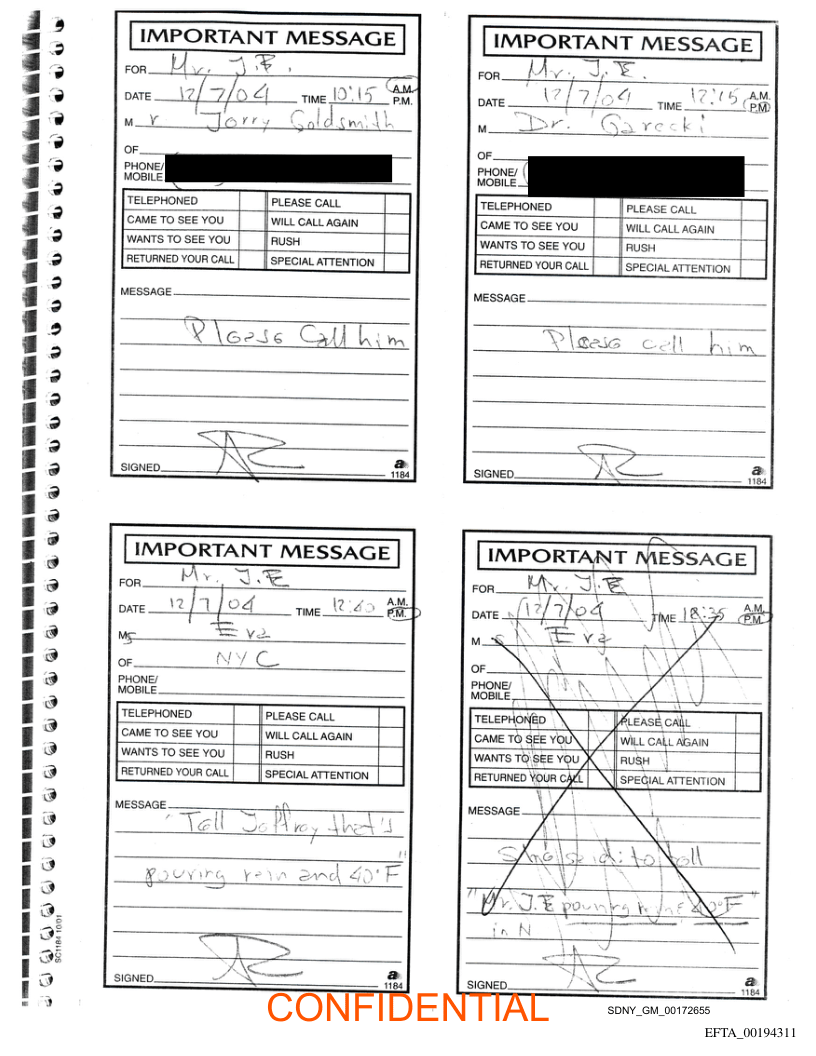 IMPORTANT MESSAGE
FOR Mr. J.E.
DATE 12/7/04 TIME 10:15 A.M. P.M.
M r Jerry Goldsmith
OF
PHONE/
MOBILE
TELEPHONED PLEASE CALL
CAME TO SEE YOU WILL CALL AGAIN
WANTS TO SEE YOU RUSH
RETURNED YOUR CALL SPECIAL ATTENTION
MESSAGE
Please Call him
SIGNED
a
1184
IMPORTANT MESSAGE
FOR Mr. J.E.
DATE 12/7/04 TIME 12:15 A.M. P.M.
M Dr. Garecki
OF
PHONE/
MOBILE
TELEPHONED PLEASE CALL
CAME TO SEE YOU WILL CALL AGAIN
WANTS TO SEE YOU RUSH
RETURNED YOUR CALL SPECIAL ATTENTION
MESSAGE
Please call him
SIGNED
a
1184
IMPORTANT MESSAGE
FOR Mr. J.E
DATE 12/7/04 TIME 12:40 A.M. P.M.
Ms Eva
OF NYC
PHONE/
MOBILE
TELEPHONED PLEASE CALL
CAME TO SEE YOU WILL CALL AGAIN
WANTS TO SEE YOU RUSH
RETURNED YOUR CALL SPECIAL ATTENTION
MESSAGE
"Tell Jeffrey that's
pouring rain and 40°F"
SIGNED
a
1184
IMPORTANT MESSAGE
FOR Mr. J.E
DATE 12/7/04 TIME A.M. P.M.
M s Eva
OF
PHONE/
MOBILE
TELEPHONED PLEASE CALL
CAME TO SEE YOU WILL CALL AGAIN
WANTS TO SEE YOU RUSH
RETURNED YOUR CALL SPECIAL ATTENTION
MESSAGE
She said: to tell
"Mr. J.E pouring 40°F"
in N
SIGNED
a
1184
SC1184 10/01
CONFIDENTIAL
SDNY_GM_00172655
EFTA_00194311